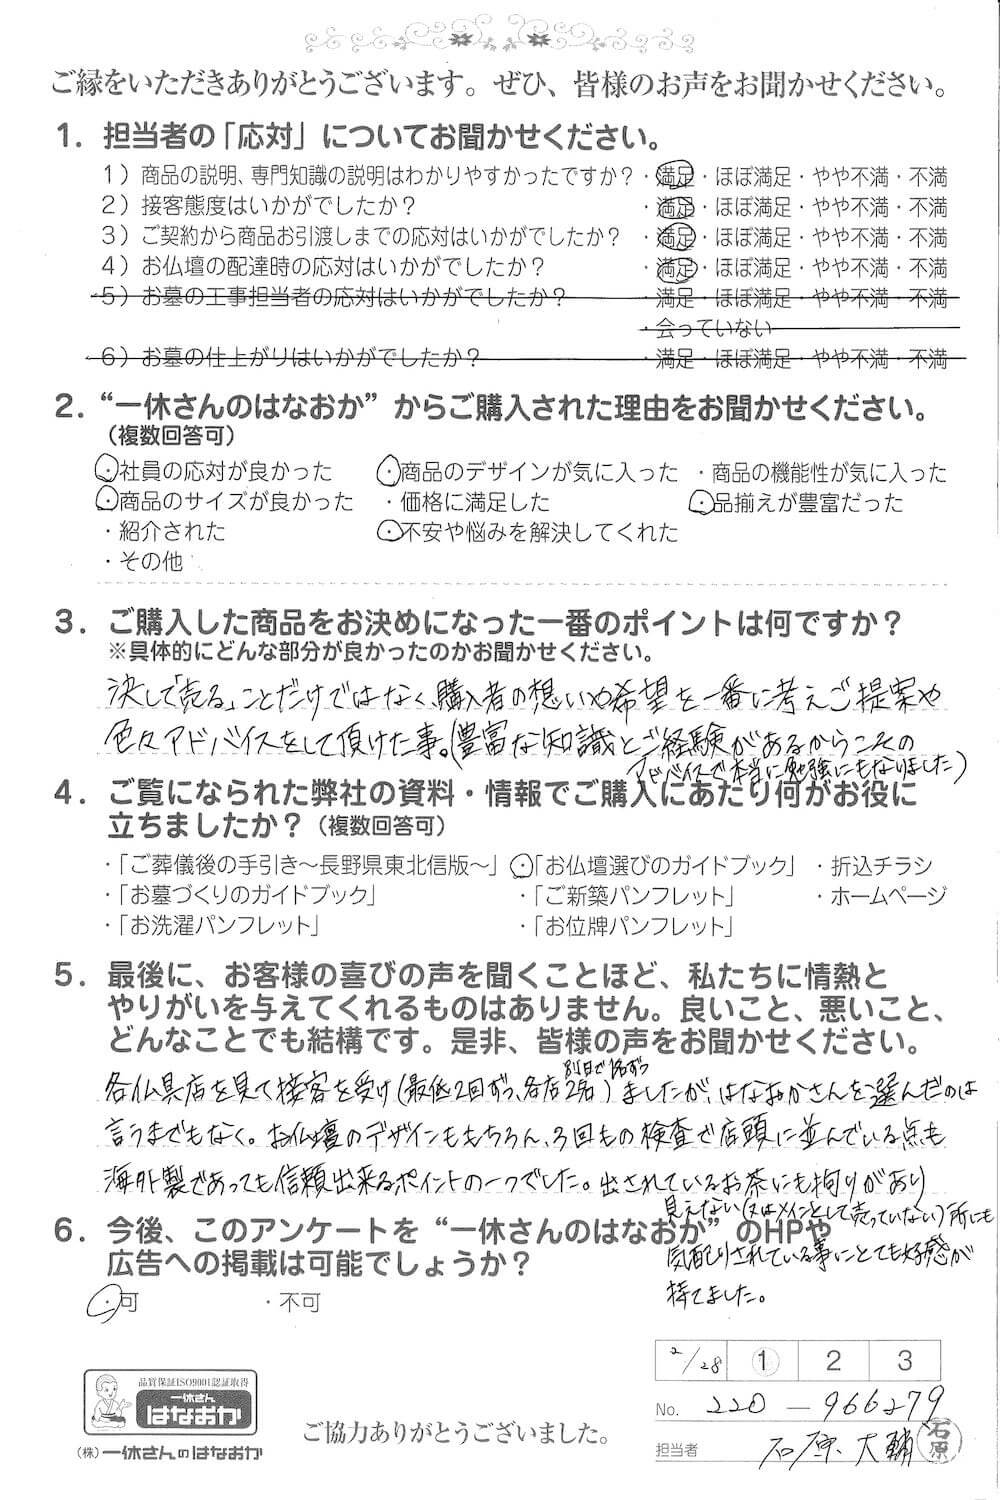 ご縁をいただきありがとうございます。ぜひ、皆様のお声をお聞かせください。
1. 担当者の「応対」についてお聞かせください。
1）商品の説明、専門知識の説明はわかりやすかったですか？ ・満足・ほぼ満足・やや不満・不満
2）接客態度はいかがでしたか？ ・満足・ほぼ満足・やや不満・不満
3）ご契約から商品お引渡しまでの応対はいかがでしたか？ ・満足・ほぼ満足・やや不満・不満
4）お仏壇の配達時の応対はいかがでしたか？ ・満足・ほぼ満足・やや不満・不満
5）お墓の工事担当者の応対はいかがでしたか？ ・満足・ほぼ満足・やや不満・不満
・会っていない
6）お墓の仕上がりはいかがでしたか？ ・満足・ほぼ満足・やや不満・不満
2. “一休さんのはなおか”からご購入された理由をお聞かせください。
（複数回答可）
・社員の応対が良かった ・商品のデザインが気に入った ・商品の機能性が気に入った
・商品のサイズが良かった ・価格に満足した ・品揃えが豊富だった
・紹介された ・不安や悩みを解決してくれた
・その他
3. ご購入した商品をお決めになった一番のポイントは何ですか？
※具体的にどんな部分が良かったのかお聞かせください。
決して「売る」ことだけではなく、購入者の想いや希望を一番に考えご提案や
色々アドバイスをして頂けた事。(豊富な知識とご経験があるからこその
アドバイスで本当に勉強にもなりました)
4. ご覧になられた弊社の資料・情報でご購入にあたり何がお役に
立ちましたか？（複数回答可）
・「ご葬儀後の手引き～長野県東北信版～」 ・「お仏壇選びのガイドブック」 ・折込チラシ
・「お墓づくりのガイドブック」 ・「ご新築パンフレット」 ・ホームページ
・「お洗濯パンフレット」 ・「お位牌パンフレット」
5. 最後に、お客様の喜びの声を聞くことほど、私たちに情熱と
やりがいを与えてくれるものはありません。良いこと、悪いこと、
どんなことでも結構です。是非、皆様の声をお聞かせください。
別日で1名ずつ
各仏具店を見て接客を受け(最低2回ずつ、各店2名)ましたが、はなおかさんを選んだのは
言うまでもなく。お仏壇のデザインももちろん、3回もの検査で店頭に並んでいる点も
海外製であっても信頼出来るポイントの一つでした。出されているお茶にも拘りがあり
見えない(又はメインとして売っていない)所にも
気配りされている事にとても好感が
持てました。
6. 今後、このアンケートを“一休さんのはなおか”のHPや
広告への掲載は可能でしょうか？
・可 ・不可
2/28 1 2 3
No. 220-966279
担当者 石原 大輔 石原
品質保証ISO9001認証取得
一休さん
はなおか
（株）一休さんのはなおか
ご協力ありがとうございました。